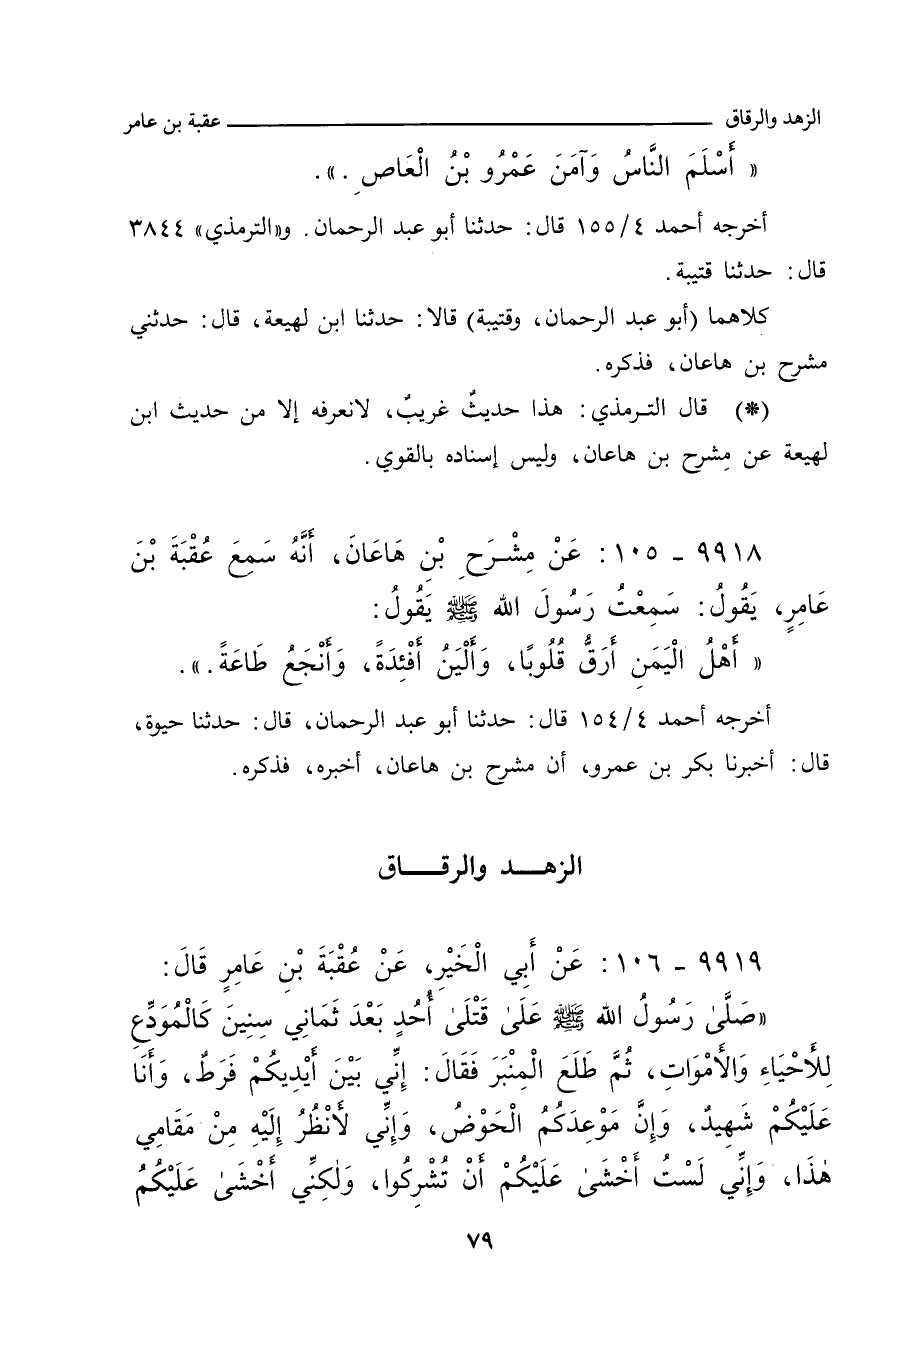 الزهد والرقاق ــــــــــ عقبة بن عامر
« أَسْلَمَ النَّاسُ وَآمَنَ عَمْرُو بْنُ الْعَاصِ .».
أخرجه أحمد ٤/ ١٥٥ قال: حدثنا أبو عبد الرحمان. و«الترمذي» ٣٨٤٤
قال: حدثنا قتيبة.
كلاهما (أبو عبد الرحمان، وقتيبة) قالا: حدثنا ابن لهيعة، قال: حدثني
مشرح بن هاعان، فذكره.
(*) قال الترمذي: هذا حديثٌ غريبٌ، لانعرفه إلا من حديث ابن
لهيعة عن مِشرح بن هاعان، وليس إسناده بالقوي.
٩٩١٨ - ١٠٥ : عَنْ مِشْرَحِ بْنِ هَاعَانَ، أَنَّهُ سَمِعَ عُقْبَةَ بْنَ
عَامِرٍ، يَقُولُ: سَمِعْتُ رَسُولَ الله ﷺ يَقُولُ:
« أَهْلُ الْيَمَنِ أَرَقُّ قُلُوبًا، وَأَلْيَنُ أَفْئِدَةً، وَأَنْجَعُ طَاعَةً.».
أخرجه أحمد ٤/ ١٥٤ قال: حدثنا أبو عبد الرحمان، قال: حدثنا حيوة،
قال: أخبرنا بكر بن عمرو، أن مشرح بن هاعان، أخبره، فذكره.
الزهد والرقاق
٩٩١٩ - ١٠٦ : عَنْ أَبِي الْخَيْرِ، عَنْ عُقْبَةَ بْنِ عَامِرٍ قَالَ:
«صَلَّىٰ رَسُولُ الله ﷺ عَلَىٰ قَتْلَىٰ أُحُدٍ بَعْدَ ثَمَانِي سِنِينَ كَالْمُوَدِّعِ
لِلأَحْيَاءِ وَالأَمْوَاتِ، ثُمَّ طَلَعَ الْمِنْبَرَ فَقَالَ: إِنِّي بَيْنَ أَيْدِيكُمْ فَرَطٌ، وَأَنَا
عَلَيْكُمْ شَهِيدٌ، وَإِنَّ مَوْعِدَكُمُ الْحَوْضُ، وَإِنِّي لَأَنْظُرُ إِلَيْهِ مِنْ مَقَامِي
هٰذَا، وَإِنِّي لَسْتُ أَخْشَىٰ عَلَيْكُمْ أَنْ تُشْرِكُوا، وَلٰكِنِّي أَخْشَىٰ عَلَيْكُمُ
٧٩